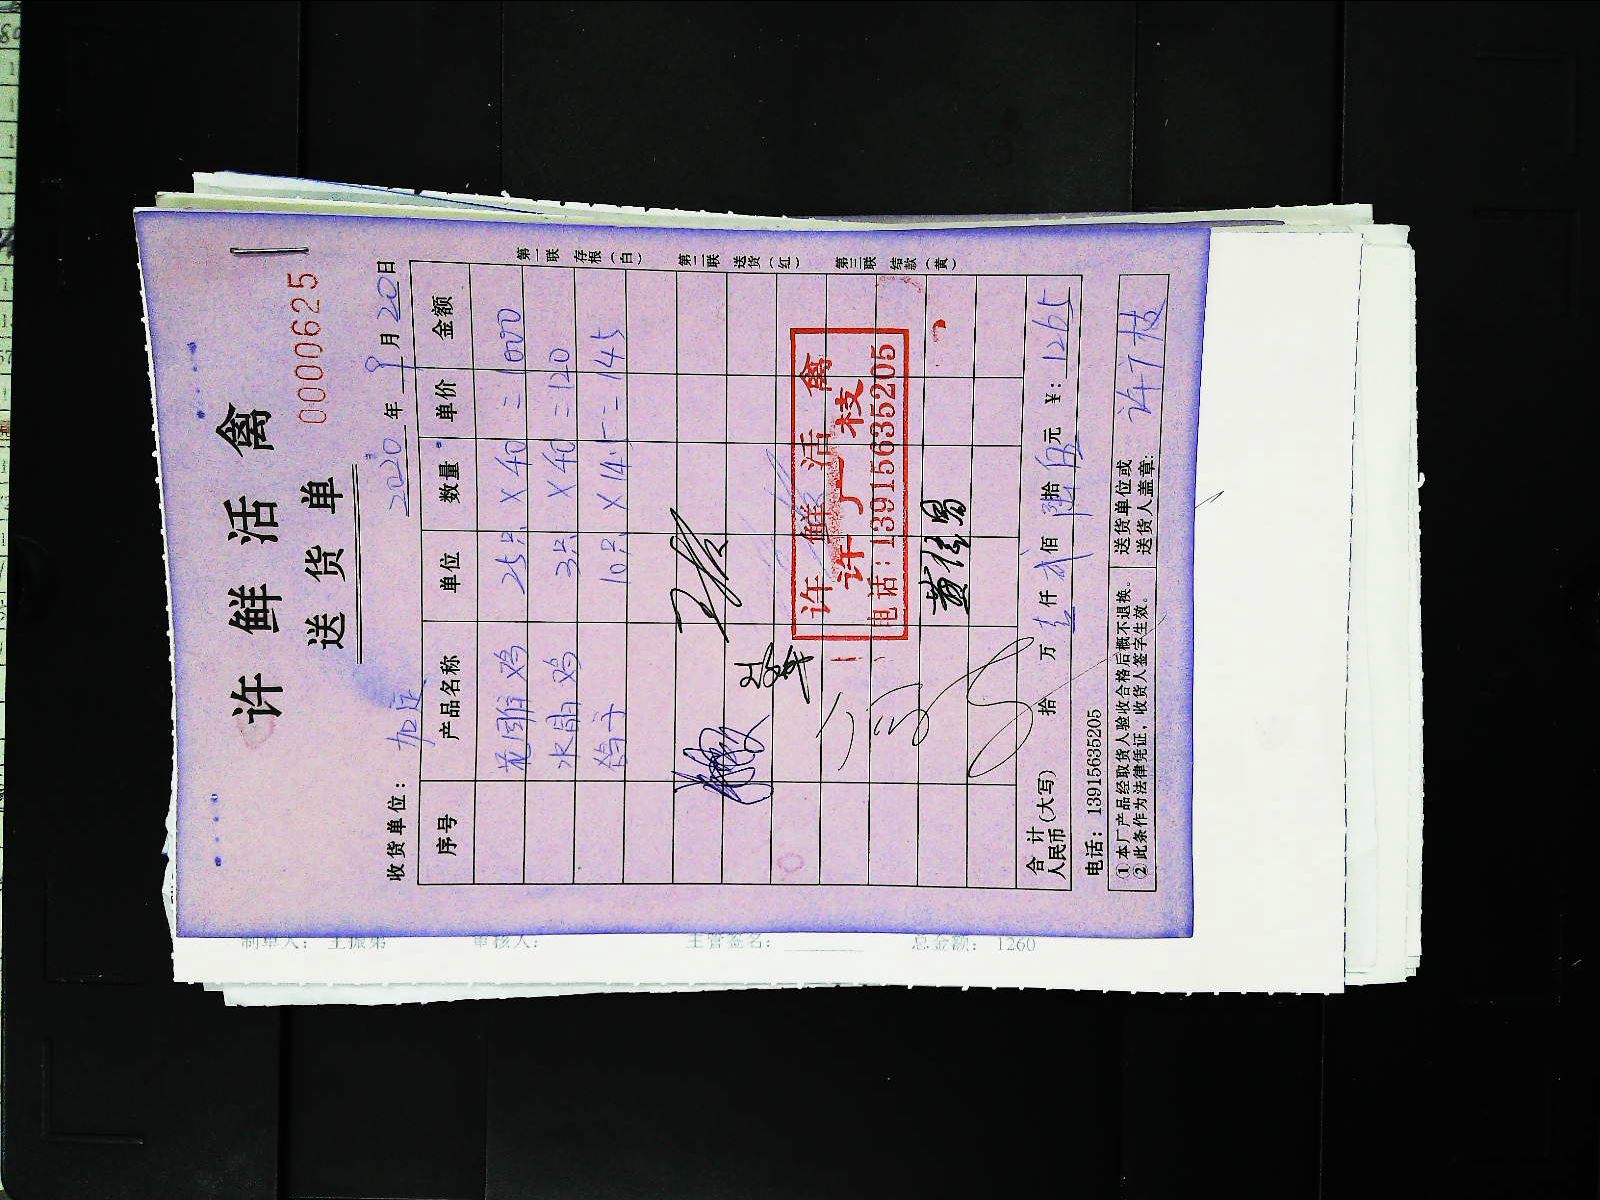 许鲜活禽
送货单
0000625
收货单位： 加定 2020年9月20日
序号 产品名称 单位 数量 单价 金额
花雕鸡 25只 X40 = 1000
水晶鸡 3只 X40 = 120
鸽子 10只 X14.5 = 145
许鲜活禽
许广枝
电话:13915635205
黄佳易
合计人民币(大写) 拾 万 壹仟 贰佰 陆拾 伍元 ¥: 1265
电话：13915635205
①本厂产品经取货人验收合格后概不退换。
②此条作为法律凭证，收货人签字生效。
送货单位或送货人盖章: 许广枝
第一联 存根（白）
第二联 送货（红）
第三联 结款（黄）
制单人： 王振弟 审核人： 主管签名： 总金额： 1260